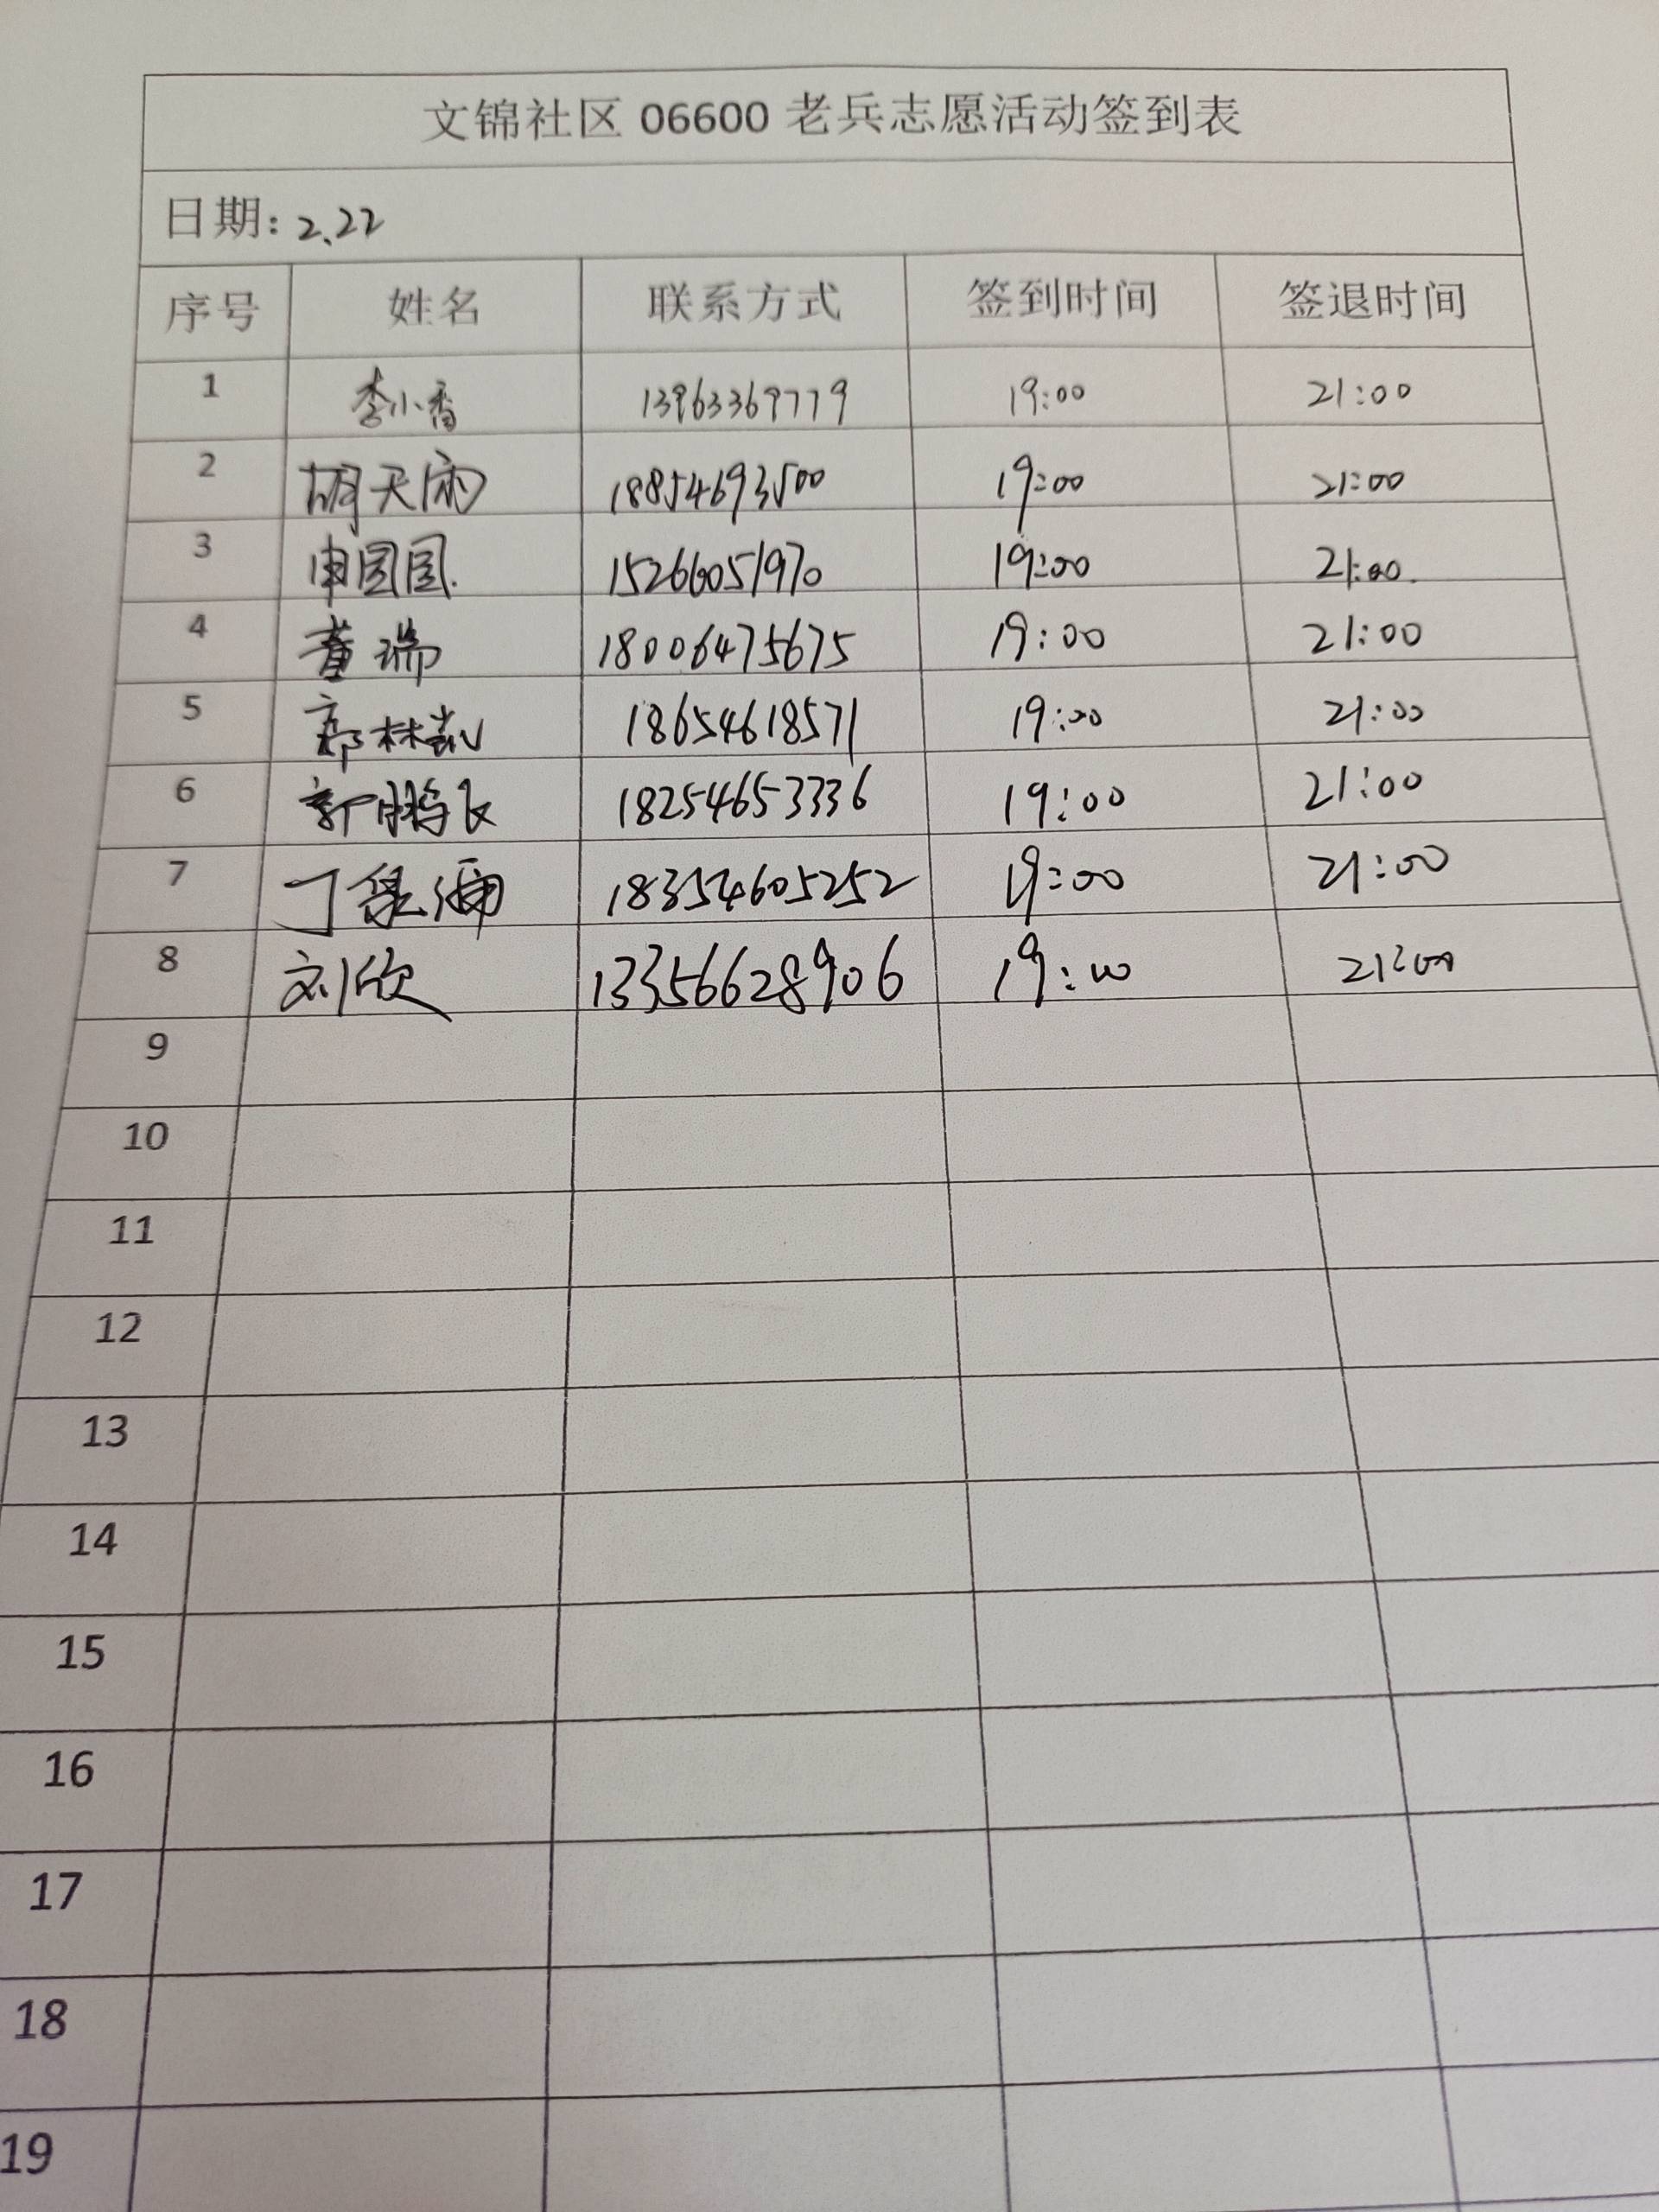 文锦社区 06600 老兵志愿活动签到表
日期: 2.22
序号 姓名 联系方式 签到时间 签退时间
1 李小香 13963369779 19:00 21:00
2 胡天雨 18854693500 19:00 21:00
3 申国国. 15266051970 19:00 21:00.
4 董瑞 18006475675 19:00 21:00
5 郭林凯 18654618571 19:00 21:00
6 郭鹏飞 18254653336 19:00 21:00
7 丁 18354605252 19:00 21:00
8 刘欣 13356628906 19:00 21:00
9
10
11
12
13
14
15
16
17
18
19